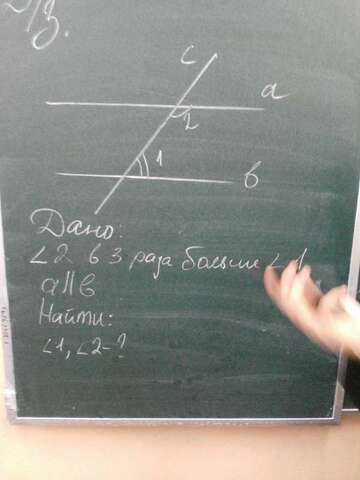 Д/з.
c
a
2
1
b
Дано:
∠2 в 3 раза больше ∠1
a||b
Найти:
∠1, ∠2-?